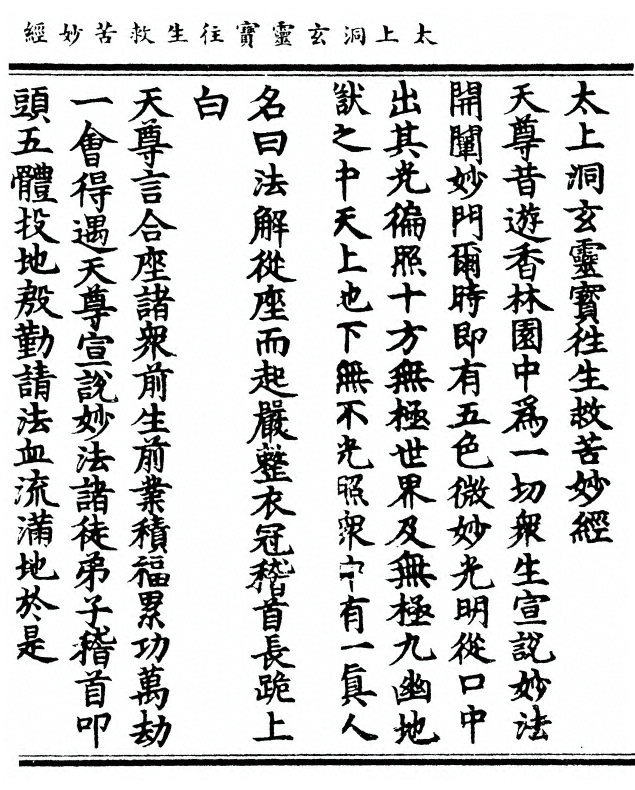 太上洞玄靈寶往生救苦妙經
太上洞玄靈寶徃生救苦妙經
天尊昔遊香林園中爲一切衆生宣說妙法
開闡妙門爾時即有五色微妙光明從口中
出其光徧照十方無極世界及無極九幽地
獄之中天上地下無不光照衆中有一眞人
名曰法解從座而起嚴整衣冠稽首長跪上
白
天尊言合座諸衆前生前業積福累功萬劫
一會得遇天尊宣說妙法諸徒弟子稽首叩
頭五體投地慇勤請法血流滿地於是